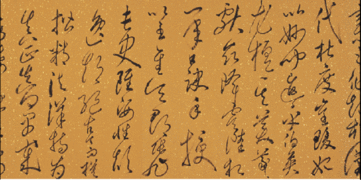 代杜度崔瑗始
以妙聞迨乎伯英
尤擅其美羲
獻茲降虞陸相
承口訣手授
以至于吳郡張旭
長史雖姿性顛
逸超絕古今而模
楷精法詳特為
真正真卿早歲